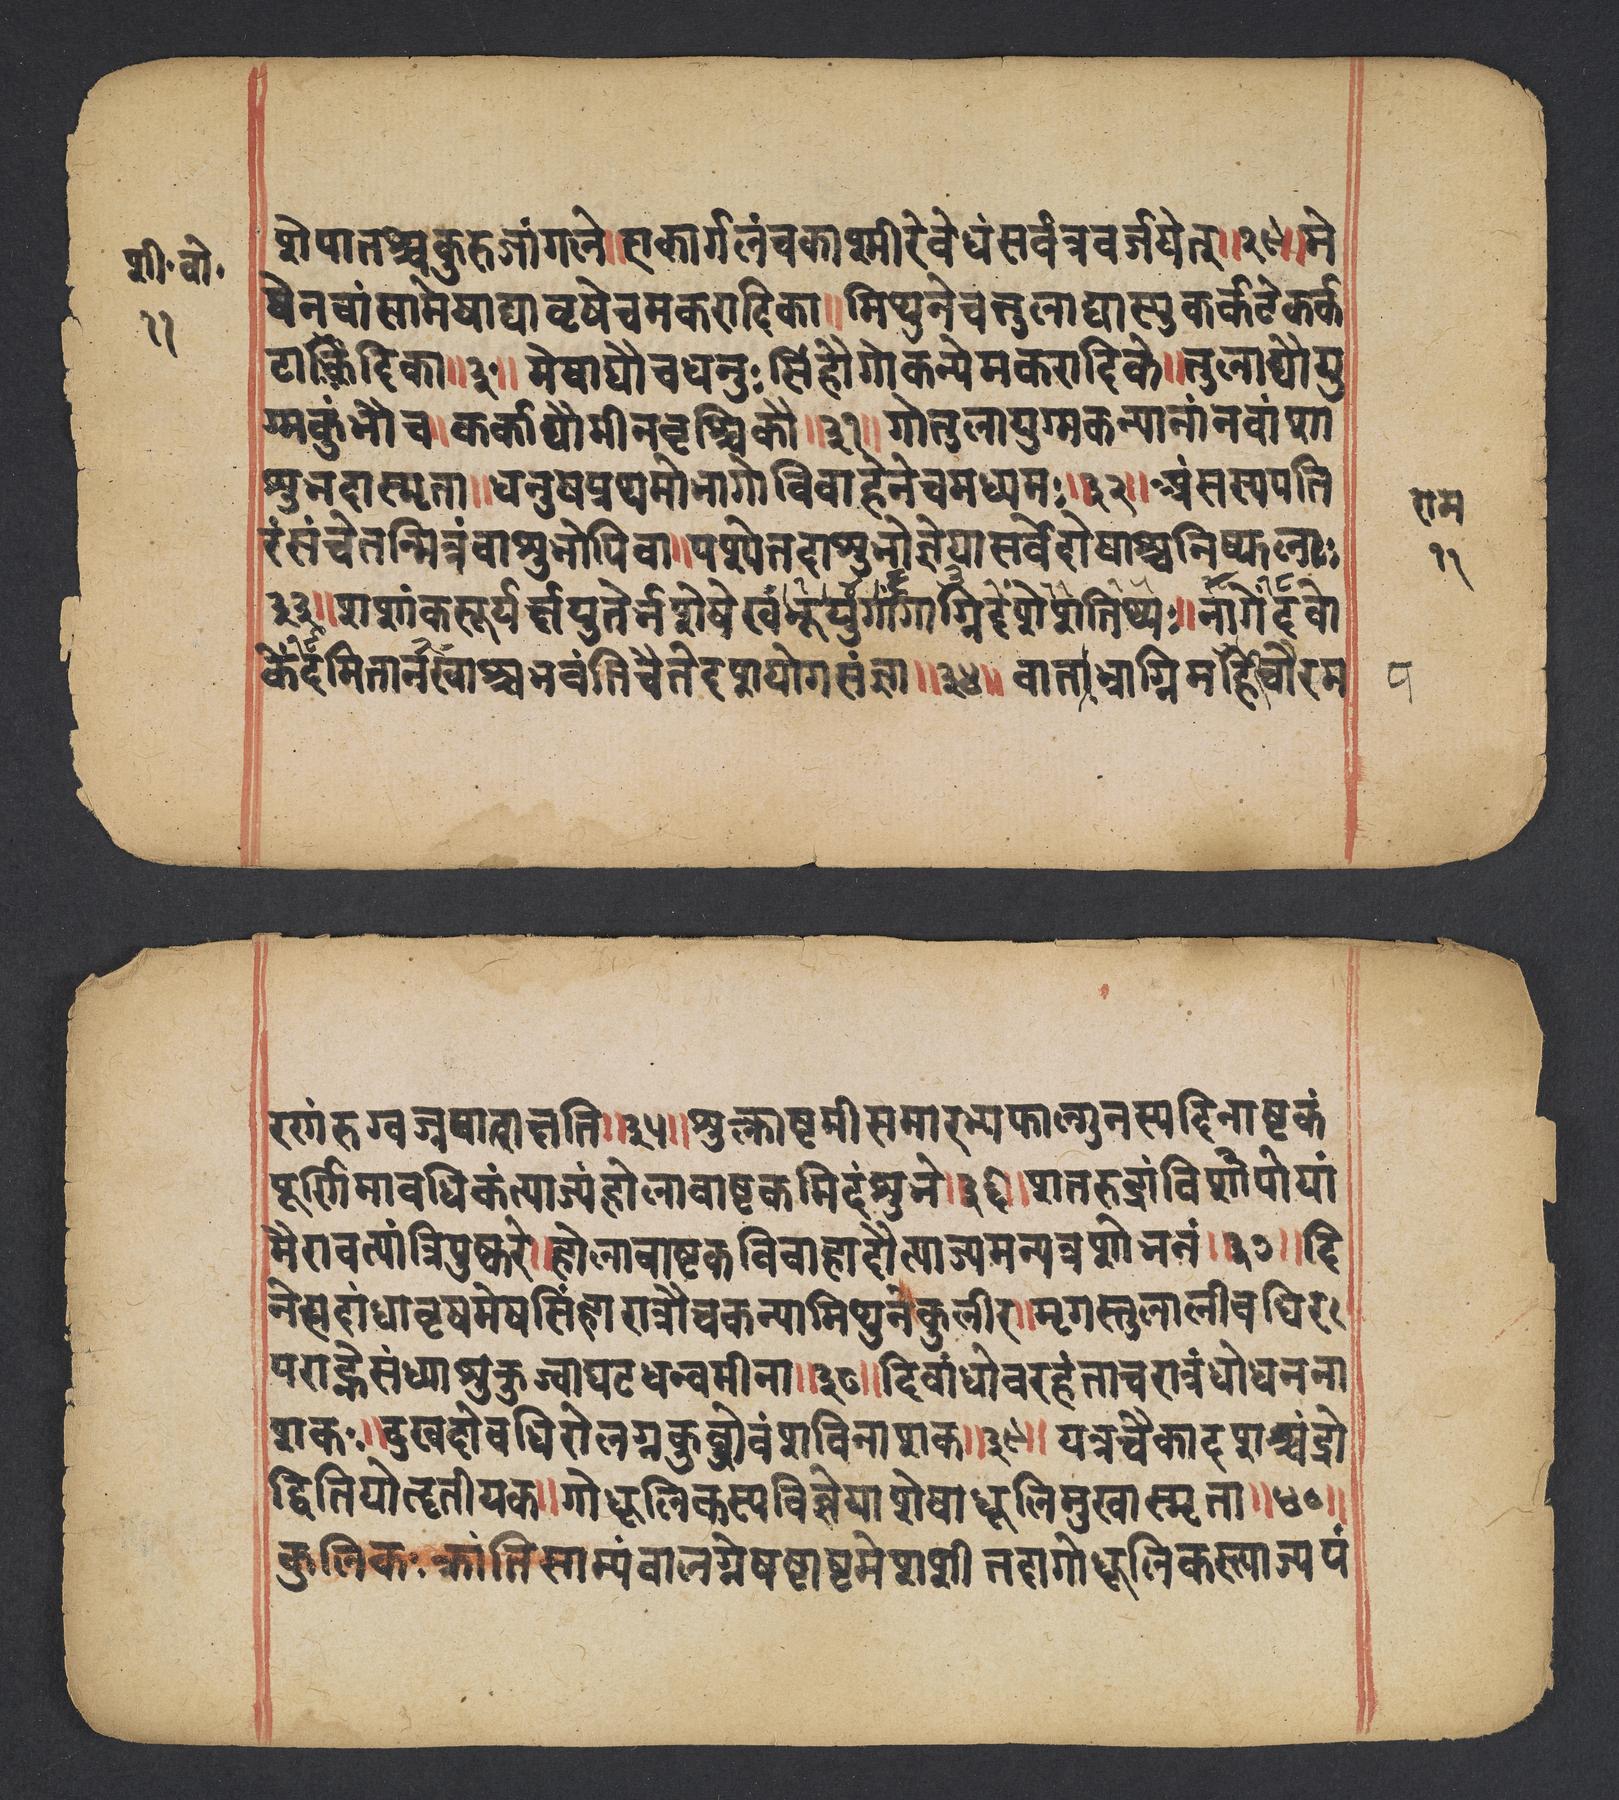 शेपातश्चकुरुजांगले॥एकार्गलंचकाश्मीरेवेधंसर्वत्रवर्जयेत्॥२९॥मे
शी॰बो॰
११
षेनवांसामेषाद्यावृषेचमकरादिका॥मिथुनेचतुलाद्यास्युकर्कटेकर्क
टादिका॥३०॥मेषाद्यौचधनुःसिंहौगोकन्येमकरादिके॥तुलाद्यौयु
ग्मकुंभौच॥कर्काद्यौमीनवृश्चिकौ॥३१॥गोतुलायुग्मकन्यानांनवांशा
शुभदास्मृता॥धनुषप्रथमोभागोविवाहेनेचमध्यमः॥३२॥अंसस्यपति
राम
११
रंसंचेतन्मित्रंवाशुभोपिवा॥पश्येतदाशुभोज्ञेयासर्वेदोषाश्चनिष्फलाः
३३॥शशांकसूर्यर्क्षयुतेर्नशेषेखंभूयुगांगाग्निदेशेशतिथ्यः॥नागेंदवो
केंदमितानखाश्चभवंतिचैतेदशयोगसंज्ञा॥३४॥वाताभ्राग्निमहिचौरम
रणंरुग्वज्रघातक्षति॥३५॥शुक्लाष्टमीसमारभ्यफाल्गुनस्यदिनाष्टकं
पूर्णिमावधिकंत्याज्यंहोलावाष्टकमिदंशुभे॥३६॥शतरुद्रांविशौपोयां
मैरावत्यांत्रिपुष्करे॥होलावाष्टकविवाहादौत्याज्यमन्यत्रशोभनं॥३७॥दि
नेसदांधावृषमेषसिंहारात्रौचकन्यामिथुनेकुलीर॥मृगस्तुलालीबधिर
पराह्णेसंध्याशुकुब्जाघटधन्वमीना॥३८॥दिवांधोवरहंताचरात्रंधोधनना
शकः॥दुखदोबधिरोलग्नकुब्जोवंशविनाशक॥३९॥यत्रचैकादशश्चंद्रो
द्वितियोतृतीयक॥गोधूलिकस्यविज्ञेयाशेषाधूलिमुखास्मृता॥४०॥
कुलिकःक्रांतिसाम्यंचालग्नेषष्टाष्टमेशशीतदागोधूलिकस्त्याज्यपं